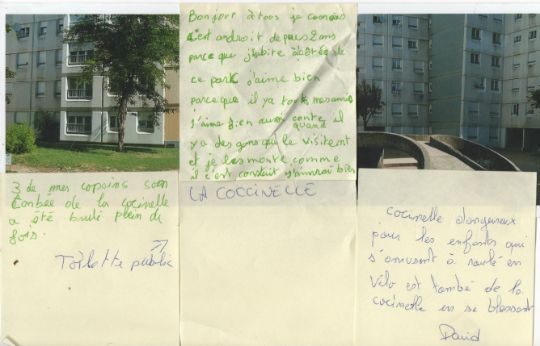 Bonjour à tous je connais
c'est androit depuis 2 ans
parce que j'habite à côtés de
ce park j'aime bien
parce que il ya tous mes amis
j'aime bien aussi quand il
ya des gens qui le visitent
et je les monte comme
il c'est construit j'aimrai bien
3 de mes copains son
tombée de la cocinelle
a été brulé plein de
fois.
Toilette public
LA COCCINELLE
cocinelle dangereux
pour les enfants qui
s'amusent à roulé en
vélo est tombé de la
cocinelle en se blessant
David